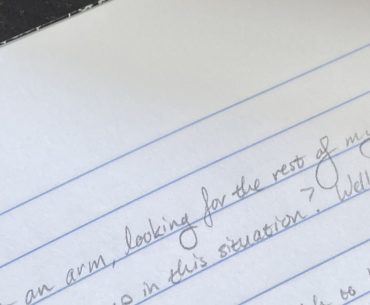 an arm, looking for the rest of my
in this situation? Well
to